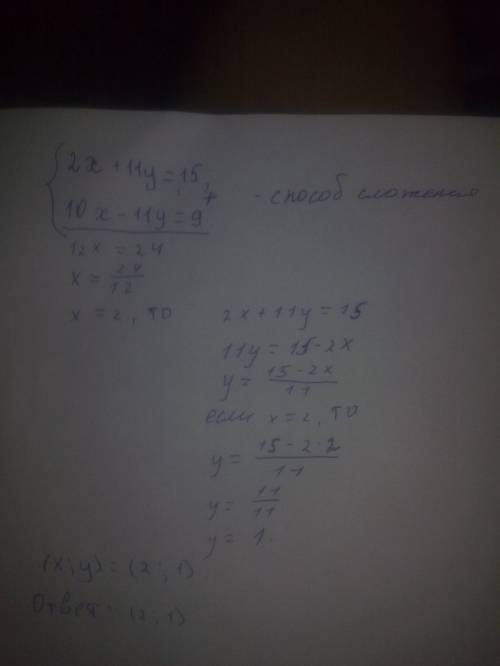 2x + 11y = 15,
10x - 11y = 9 +
- способ сложения
12x = 24
x = 24/12
x = 2, то
2x + 11y = 15
11y = 15 - 2x
y = 15 - 2x/11
если x = 2, то
y = 15 - 2·2/11
y = 11/11
y = 1.
(x; y) = (2; 1)
Ответ: (2; 1)